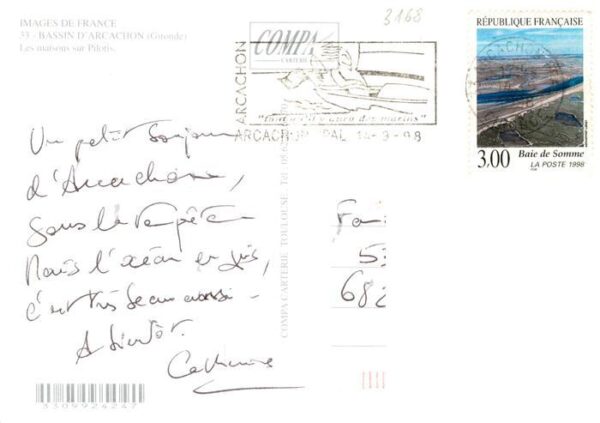 IMAGES DE FRANCE
33 - BASSIN D'ARCACHON (Gironde)
Les maisons sur Pilotis.
3168
COMPA
CARTERIE
ARCACHON
ARCACHON PAL 14-9-98
RÉPUBLIQUE FRANÇAISE
3,00
Baie de Somme
LA POSTE 1998
Un petit bonjour
d'Arcachon,
sous la tempête
Mais l'océan en gris,
c'est très beau aussi -
A bientôt.
Catherine
COMPA CARTERIE TOULOUSE
Fa
5
682
3309924247